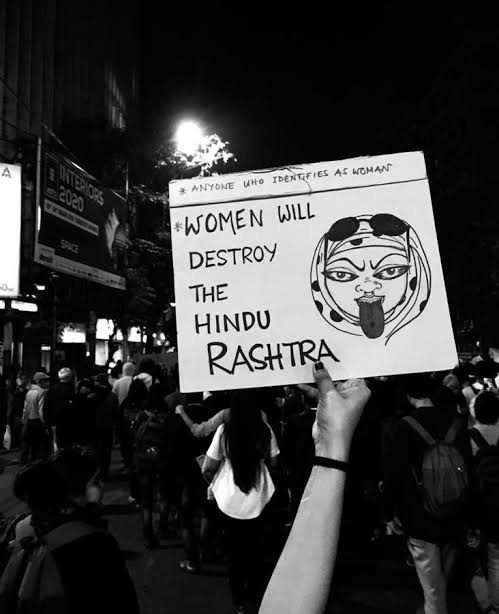 * ANYONE WHO IDENTIFIES AS WOMAN
*WOMEN WILL
DESTROY
THE
HINDU
RASHTRA
A
INTERIORS
2020
SPACE